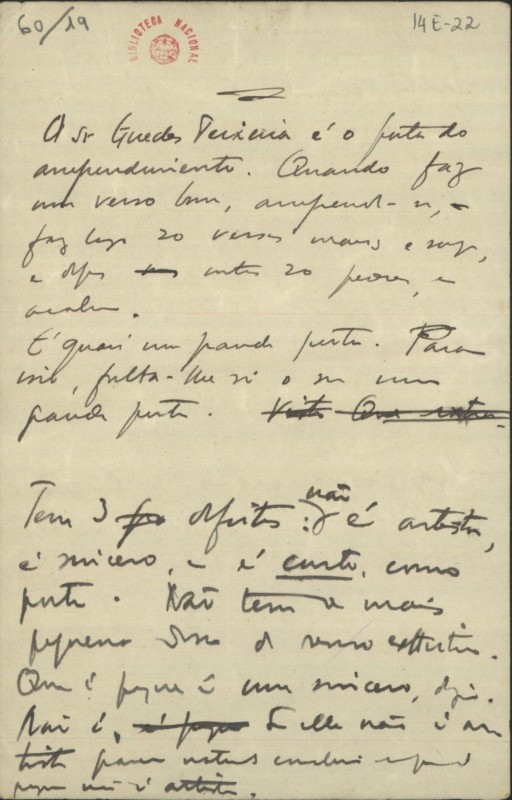 60/19
14E-22
BIBLIOTECA NACIONAL
O sr Guedes Teixeira é o poeta do
arrependimento. Quando faz
um verso bom, arrepende-se,
faz logo 20 versos maus e
e depois outros 20 peores, e
acaba.
É quasi um grande poeta. Para
isso, falta-lhe só o ser um
grande poeta.
Tem 3 defeitos: não é artista,
é sincero, e é curto, como
poeta. Não tem a mais
pequena de senso esthetico.
Que é porque é um sincero,
Não é, Se elle não é ar-
tista
porque não é artista.